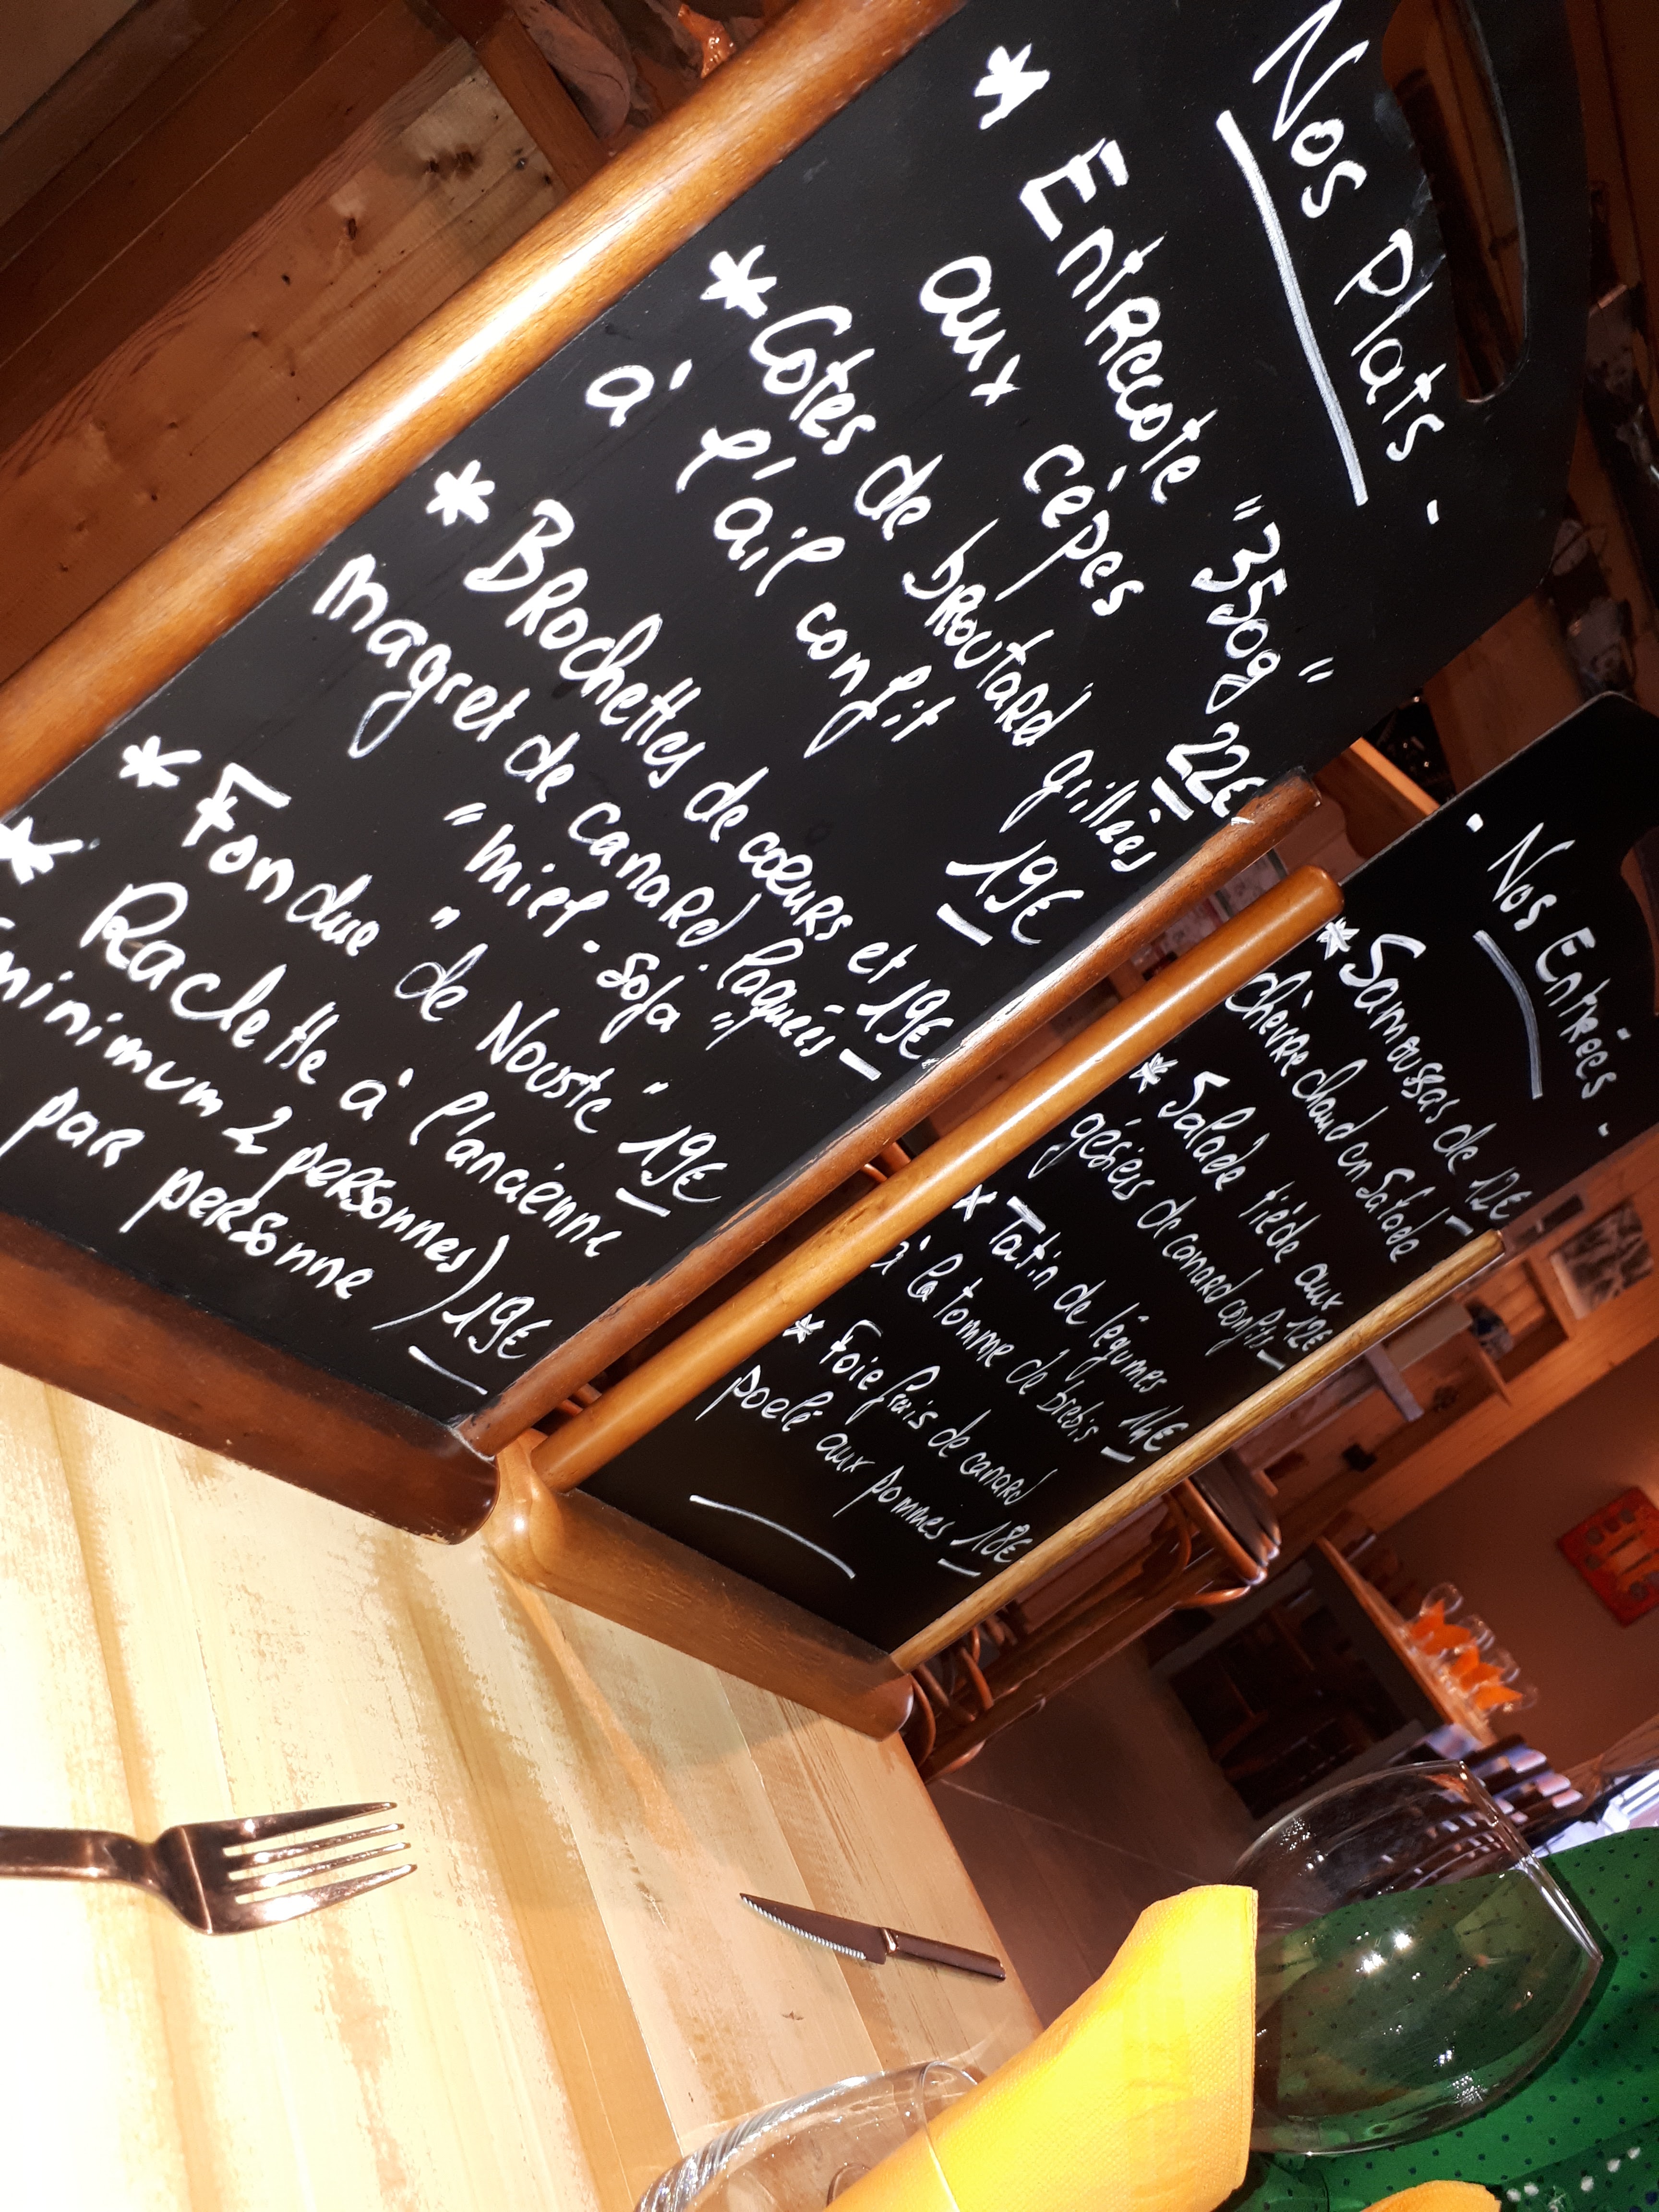 Nos Plats -
* Entrecote "350g"
aux cèpes 22€
* Côtes de broutard grillées
à l'ail confit 19€
* Brochettes de cœurs et 19€
magret de canard laqués
"miel - soja"
* Fondue "de Nousté" 19€
* Raclette à l'ancienne
(minimum 2 personnes) 19€
par personne)
- Nos Entrées -
* Samoussas de 12€
chèvre chaud en Salade
* Salade tiède aux 12€
gésiers de canard confits
* Tatin de légumes 14€
à la tomme de brebis
* Foie frais de canard
poelé aux pommes 18€